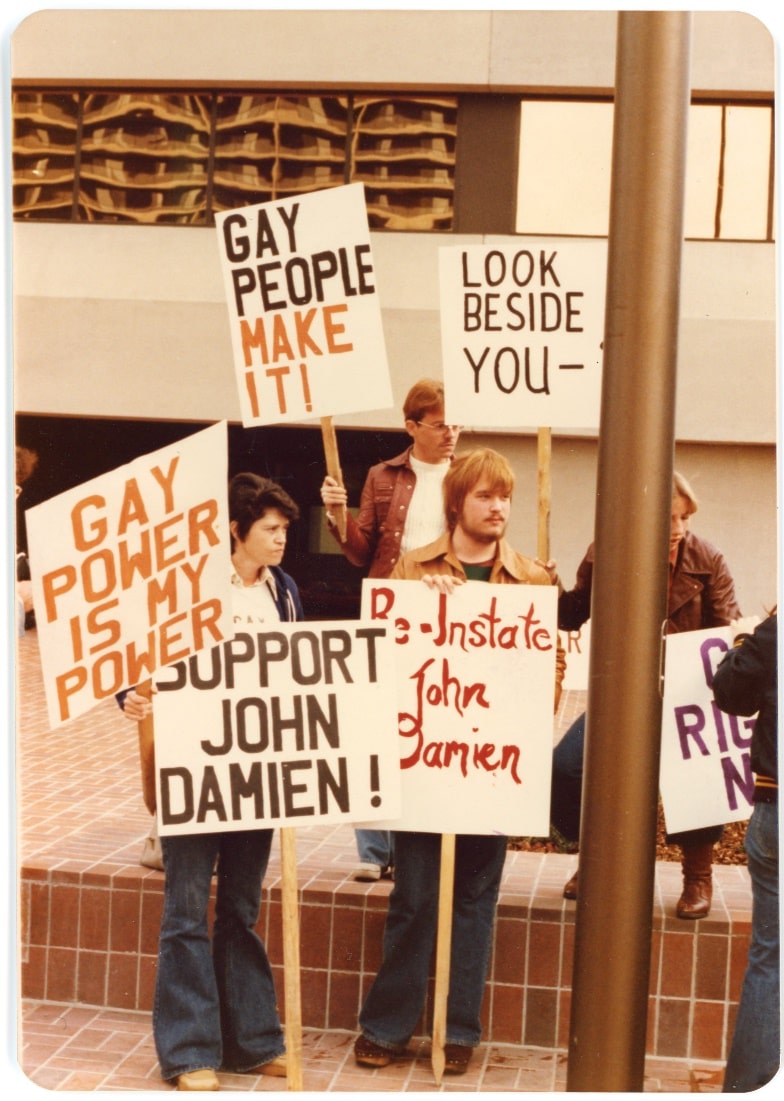 GAY
PEOPLE
MAKE
IT!
LOOK
BESIDE
YOU-
GAY
POWER
IS MY
POWER
SUPPORT
JOHN
DAMIEN!
Re-Instate
John
Damien